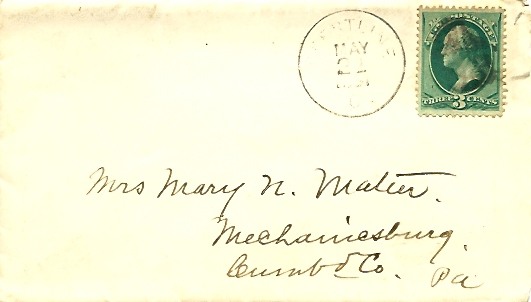 MAY
U.S. POSTAGE
THREE 3 CENTS
Mrs Mary N. Mateer.
Mechanicsburg,
Cumbd Co. Pa